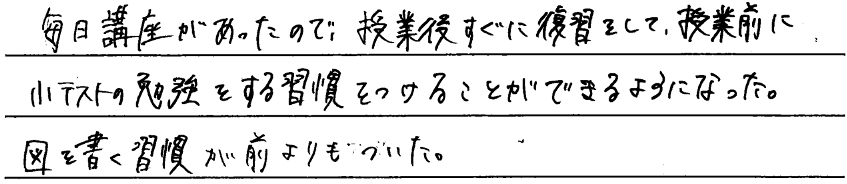 毎日講座があったので、授業後すぐに復習をして、授業前に
小テストの勉強をする習慣をつけることができるようになった。
図を書く習慣が前よりもついた。